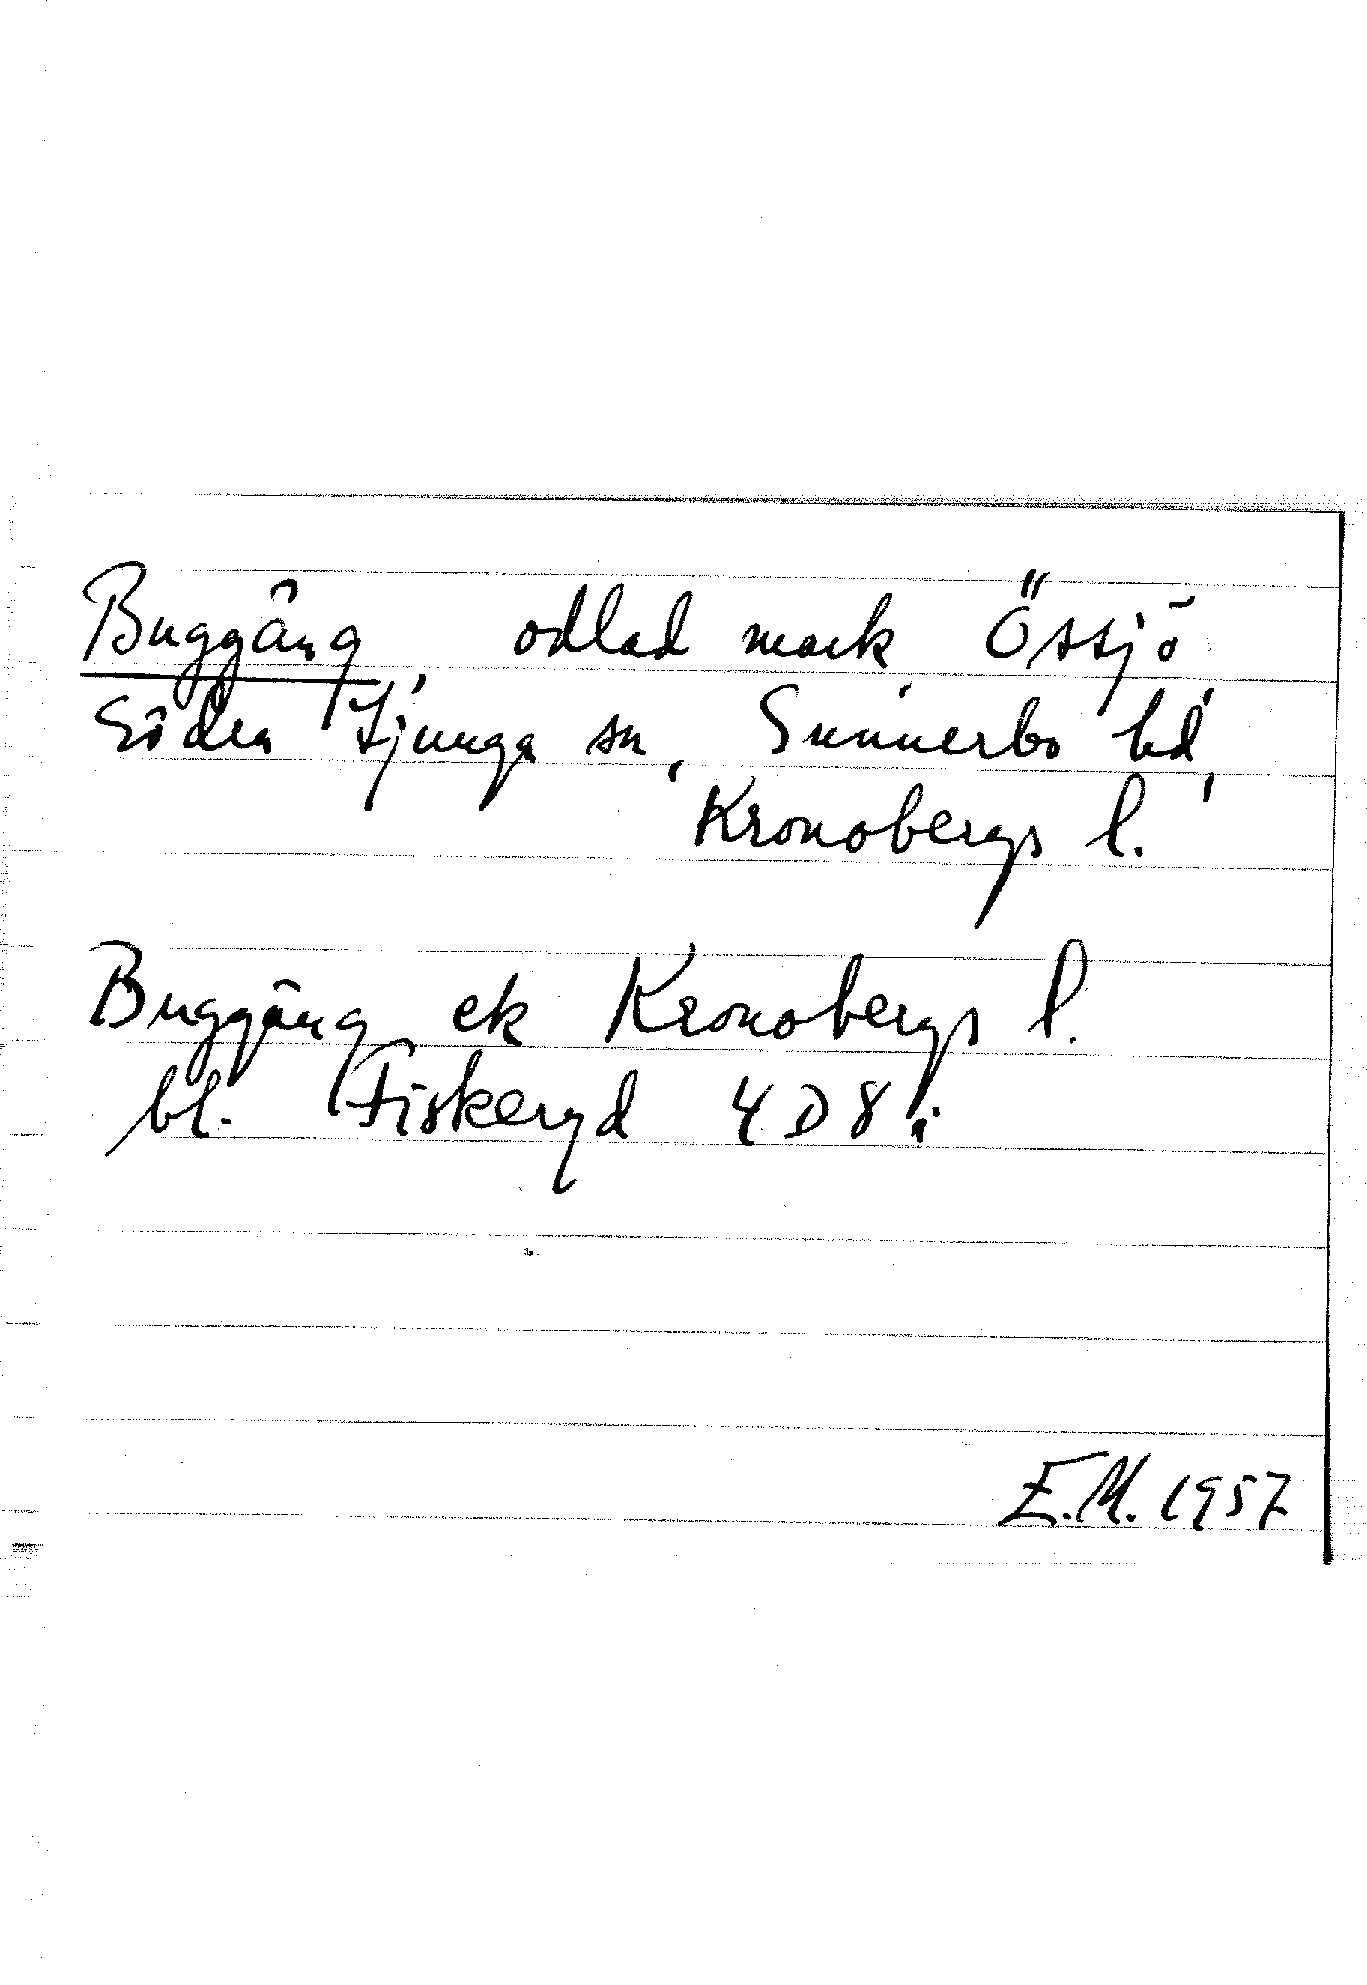 Buggäng, odlad mark Össjö,
Södra Ljunga sn, Sunnerbo hd,
Kronobergs l.
Buggäng ek Kronobergs l.
bl. Fiskeryd 4D8i
E.M. 1957